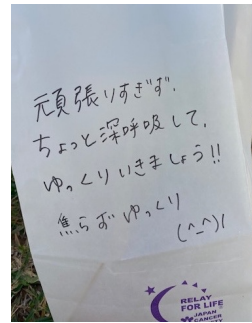 頑張りすぎず、
ちょっと深呼吸して、
ゆっくりいきましょう!!
焦らずゆっくり
(^_^)/
RELAY
FOR LIFE
JAPAN
CANCER